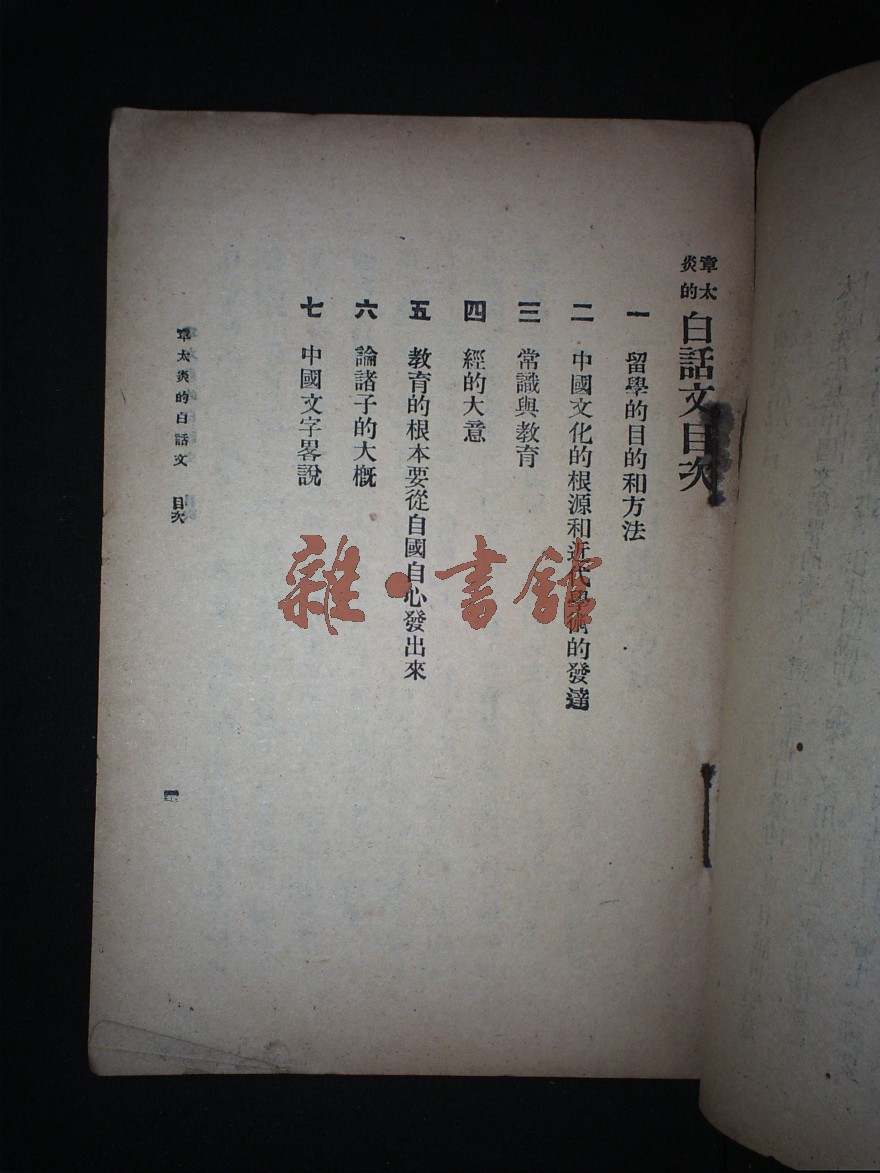 章太炎的白話文目次
一 留學的目的和方法
二 中國文化的根源和近代學術的發達
三 常識與教育
四 經的大意
五 教育的根本要從自國自心發出來
六 論諸子的大概
七 中國文字畧說
章太炎的白話文 目次
雜·書館